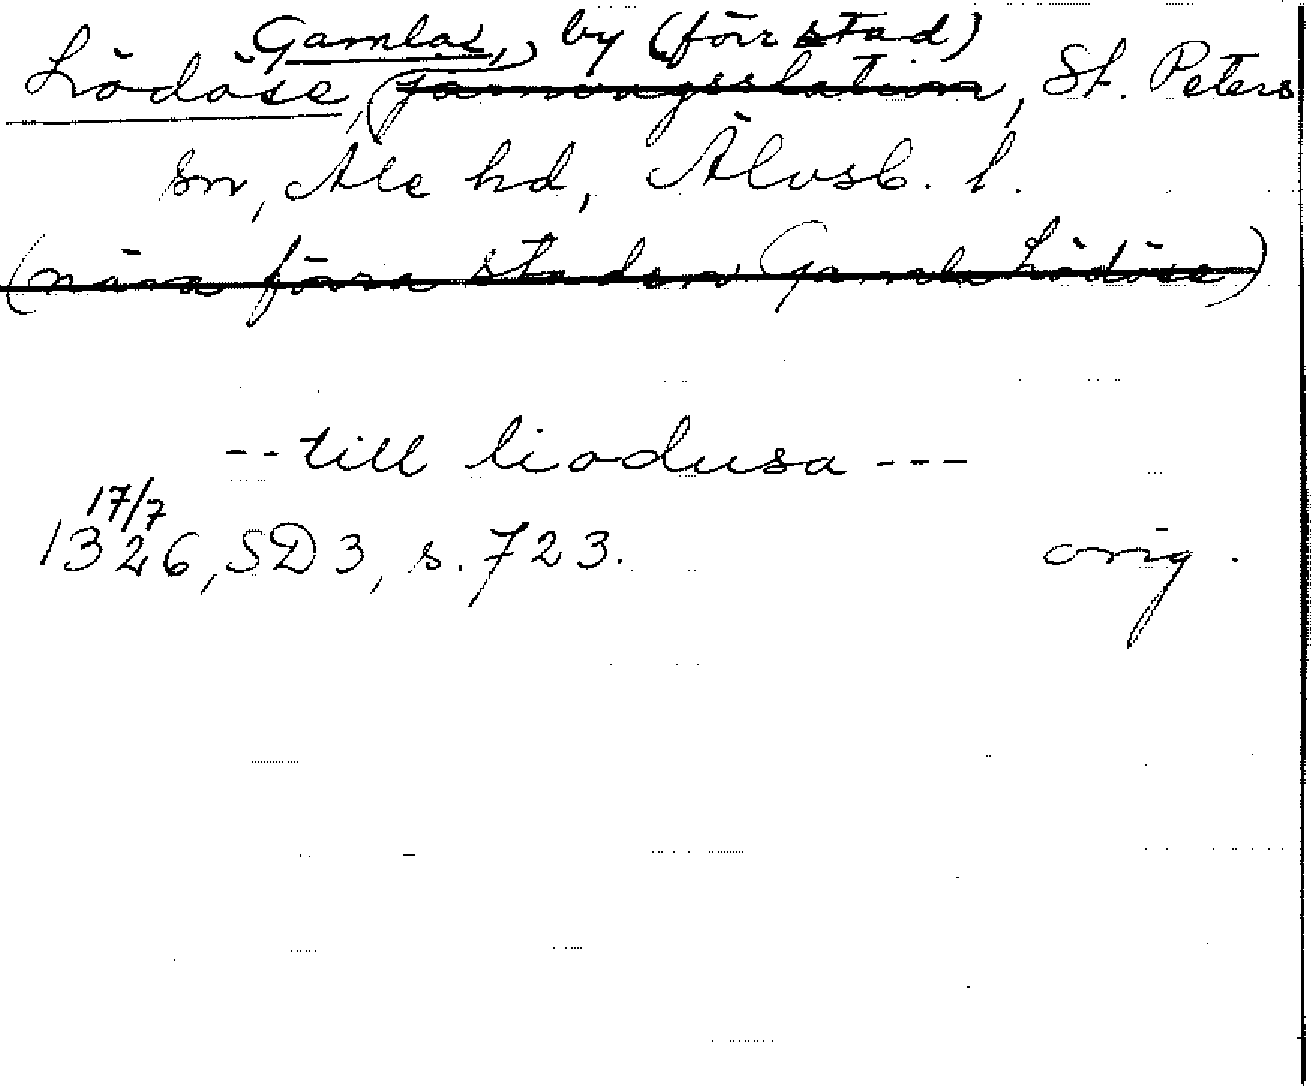 Gamla, by (förr stad)
Lödöse, järnvägsstation, St. Peters
sn, Ale hd, Älvsb. l.
(nära förra staden Gamla Lödöse)
--till liodusa---
17/7
1326, SD 3, s. 723. orig.